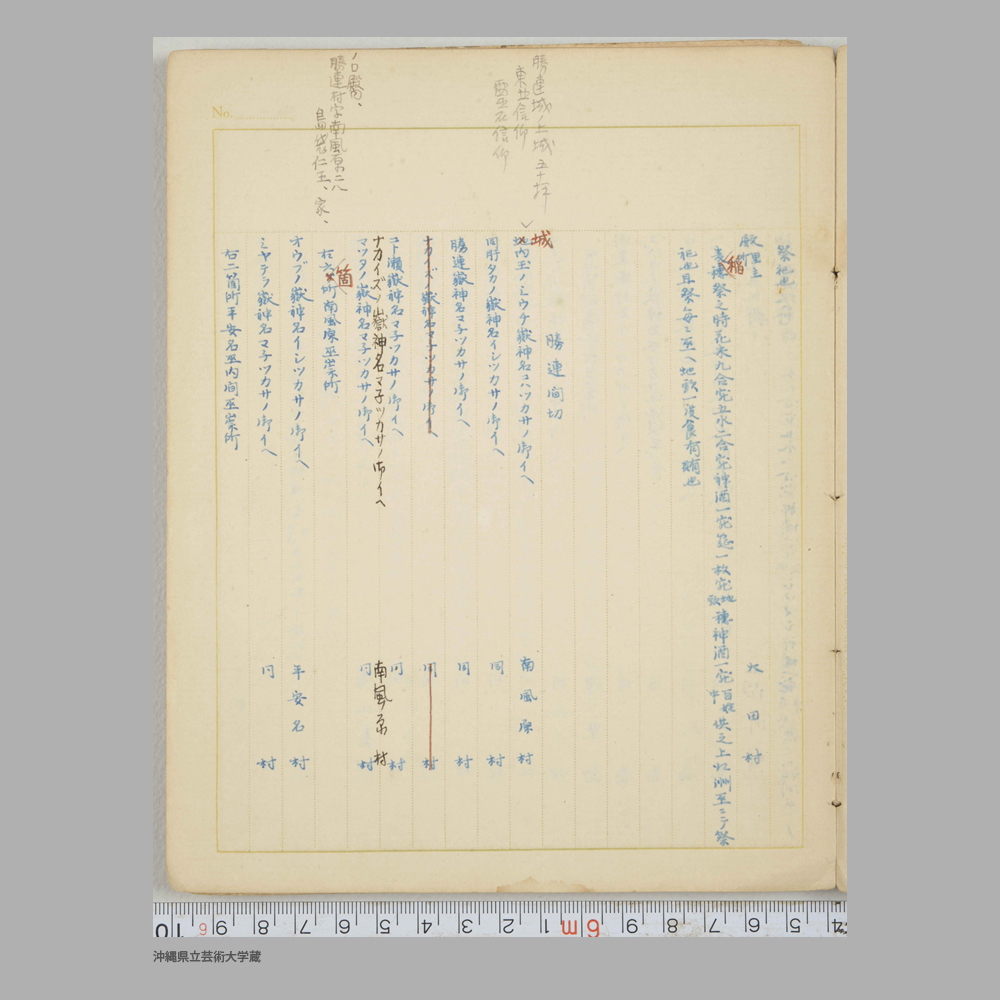 No.
勝連城ノ上城五十坪
東世信仰
ノロ殿、
勝連村字南風原二八
祭祀也
殿里主所
大田村
稲
麦穂祭之時花米九合宛五水二合宛神酒一宛筵一枚宛地頭穂神酒一宛百姓中供之上
祀也且祭毎ニ巫ヘ地頭一度食有賄也
勝連間切
城
地内玉ノミウヂ嶽神名コハツカサノ御イヘ 南風原村
同所タカノ嶽神名イシツカサノ御イヘ 同
勝連嶽神名マ子ツカサノ御イヘ 同村
ナカイズノ嶽神名マ子ツカサノ御イヘ 同村
コト瀬嶽神名マ子ツカサノ御イヘ 同村
ナカイズノ嶽神名マ子ツカサノ御イヘ 南風原村
マツタノ嶽神名マ子ツカサノ御イヘ 同村
箇
右六ヶ所南風原巫崇所
オウブノ嶽神名イシツカサノ御イヘ 平安名村
ミヤテラ嶽神名マ子ツカサノ御イヘ 同村
右二箇所平安名巫内間巫崇所
10 9 8 7 6 5 4 3 2 1 6m 9 8 7 6 5 4
沖縄県立芸術大学蔵